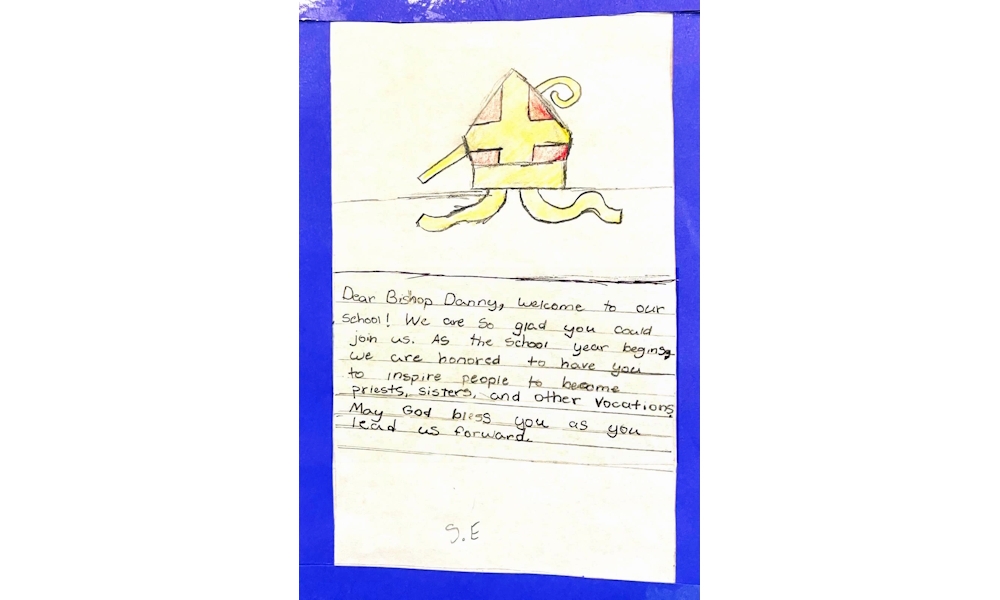 Dear Bishop Danny, welcome to our
school! We are so glad you could
join us. As the school year begins,
we are honored to have you
to inspire people to become
priests, sisters, and other vocations.
May God bless you as you
lead us forward.
S.E